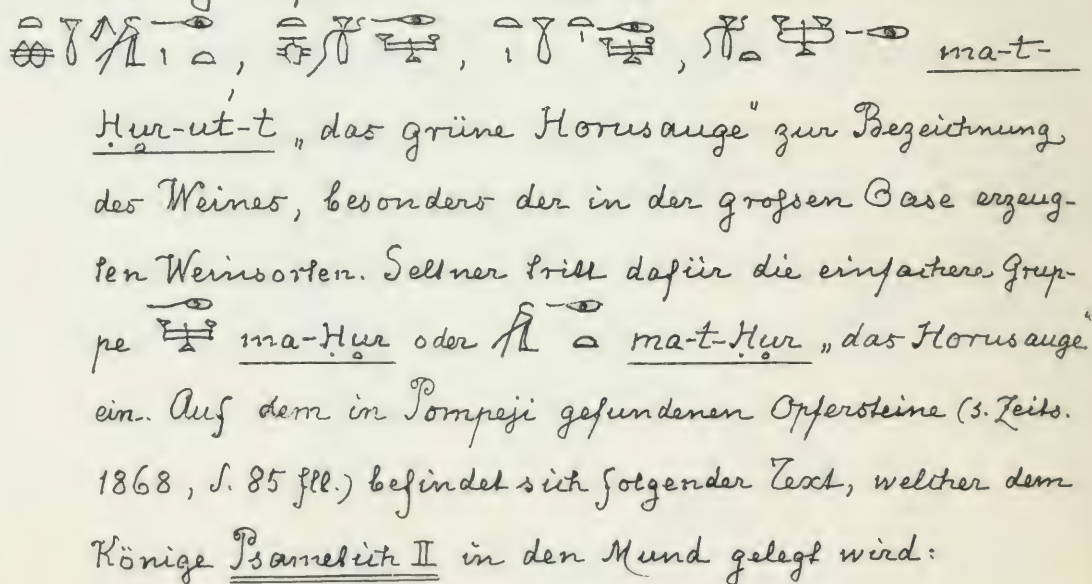 ma-t-
Ḥur-ut-t „das grüne Horusauge" zur Bezeichnung
des Weines, besonders der in der grofsen Oase erzeug-
ten Weinsorten. Seltner tritt dafür die einfachere Grup-
pe ma-Ḥur oder ma-t-Ḥur „das Horusauge"
ein. Auf dem in Pompeji gefundenen Opfersteine (s. Zeits.
1868, S. 85 fll.) befindet sich folgender Text, welcher dem
Könige Psametich II in den Mund gelegt wird: